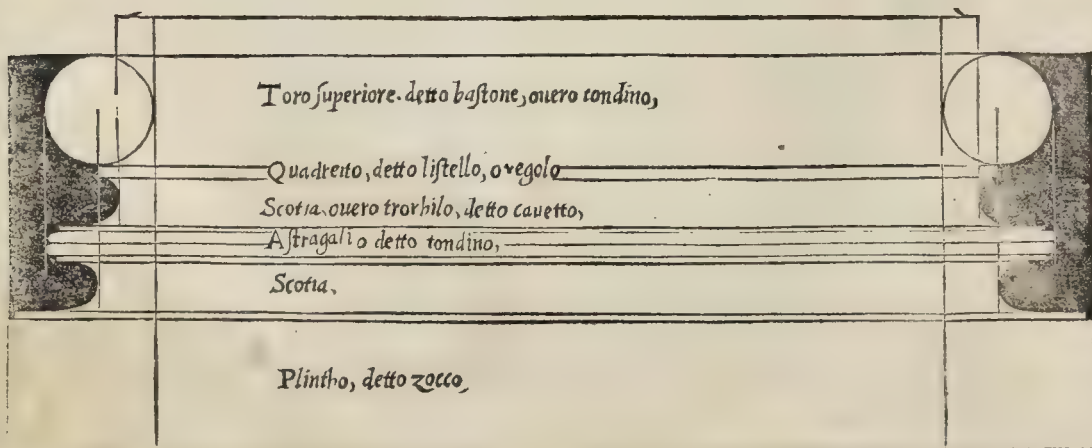 Toro ſuperiore. detto baſtone, ouero tondino,
Quadretto, detto liſtello, o regolo
Scotia. ouero trochilo, detto cauetto,
Aſtragali o detto tondino,
Scotia.
Plintho, detto zocco,